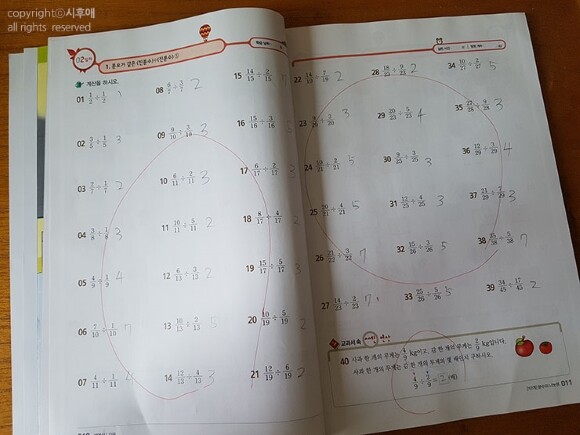 copyrightⓒ시후애
all rights reserved
02일차
1. 분모가 같은 (진분수)÷(진분수) ①
계산을 하시오.
01 1/2 ÷ 1/2 1
02 3/5 ÷ 1/5 3
03 2/7 ÷ 1/7 2
04 3/8 ÷ 1/8 3
05 4/9 ÷ 1/9 4
06 7/10 ÷ 1/10 7
07 4/11 ÷ 1/11 4
08 6/7 ÷ 3/7 2
09 9/10 ÷ 3/10 3
10 6/11 ÷ 2/11 3
11 10/11 ÷ 5/11 2
12 6/13 ÷ 3/13 2
13 10/13 ÷ 2/13 5
14 12/13 ÷ 4/13 3
15 14/15 ÷ 2/15 7
16 15/16 ÷ 3/16 5
17 6/17 ÷ 2/17 3
18 8/17 ÷ 4/17 2
19 15/17 ÷ 5/17 3
20 10/19 ÷ 5/19 2
21 12/19 ÷ 6/19 2
22 14/19 ÷ 7/19 2
23 9/20 ÷ 3/20 3
24 10/21 ÷ 2/21 5
25 20/21 ÷ 4/21 5
26 21/22 ÷ 3/22 7
27 14/23 ÷ 2/23 7
28 18/23 ÷ 9/23 2
29 20/23 ÷ 5/23 4
30 9/25 ÷ 3/25 3
31 12/25 ÷ 4/25 3
32 15/26 ÷ 3/26 5
33 25/26 ÷ 5/26 5
34 10/27 ÷ 2/27 5
35 27/28 ÷ 9/28 3
36 12/29 ÷ 3/29 4
37 21/29 ÷ 7/29 3
38 35/38 ÷ 5/38 7
39 34/45 ÷ 17/45 2
교과서 속
40 사과 한 개의 무게는 4/9 kg이고, 감 한 개의 무게는 2/9 kg입니다.
사과 한 개의 무게는 감 한 개의 무게의 몇 배인지 구하시오.
4/9 ÷ 2/9 = 2 (배)
011